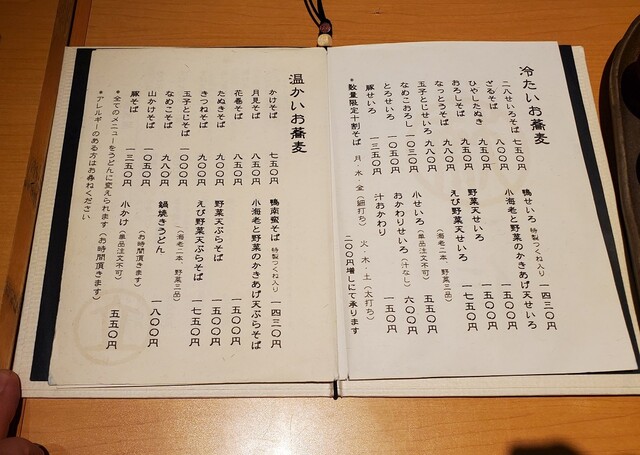 冷たいお蕎麦
二八せいろそば 七五〇円
ざるそば 八〇〇円
ひやしたぬき 九五〇円
おろしそば 九五〇円
なっとうそば 九八〇円
玉子とじせいろ 九八〇円
なめこおろし 一〇三〇円
とろせいろ 一〇五〇円
豚せいろ 一三五〇円
鴨せいろ 特製つくね入り 一四三〇円
小海老と野菜のかきあげ天せいろ 一五〇〇円
野菜天せいろ 一五〇〇円
えび野菜天せいろ 一七五〇円
（海老二本 野菜三品）
小せいろ（単品注文不可） 五五〇円
おかわりせいろ（汁なし） 六〇〇円
汁おかわり
*数量限定十割そば 月・水・金（細打ち） 火・木・土（太打ち）
二〇〇円増しにて承ります
温かいお蕎麦
かけそば 七五〇円
月見そば 八五〇円
花巻そば 八五〇円
たぬきそば 九〇〇円
きつねそば 九〇〇円
玉子とじそば 一〇〇〇円
なめこそば 九八〇円
山かけそば 一〇五〇円
豚そば 一三五〇円
鴨南蛮そば 特製つくね入り 一四三〇円
小海老と野菜のかきあげ天ぷらそば 一五〇〇円
野菜天ぷらそば 一五〇〇円
えび野菜天ぷらそば 一七五〇円
（海老二本 野菜三品）
鍋焼きうどん 一八〇〇円
（お時間頂きます）
小かけ（単品注文不可） 五五〇円
*全てのメニューをうどんに変えられます（お時間頂きます）
*アレルギーのある方はお尋ねください